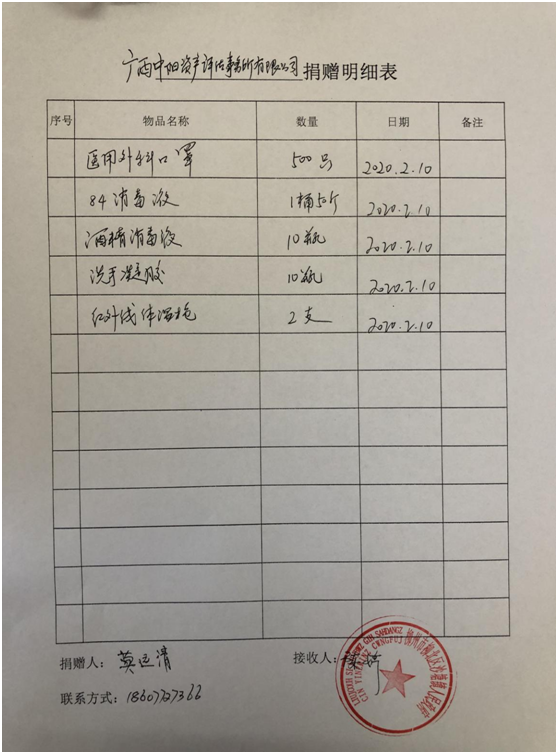 广西中阳资产评估事务所有限公司捐赠明细表
序号 物品名称 数量 日期 备注
医用外科口罩 500只 2020.2.10
84消毒液 1桶50斤 2020.2.10
酒精消毒液 10瓶 2020.2.10
洗手凝胶 10瓶 2020.2.10
红外线体温枪 2支 2020.2.10
捐赠人：莫运清 接收人：
联系方式：18607727366